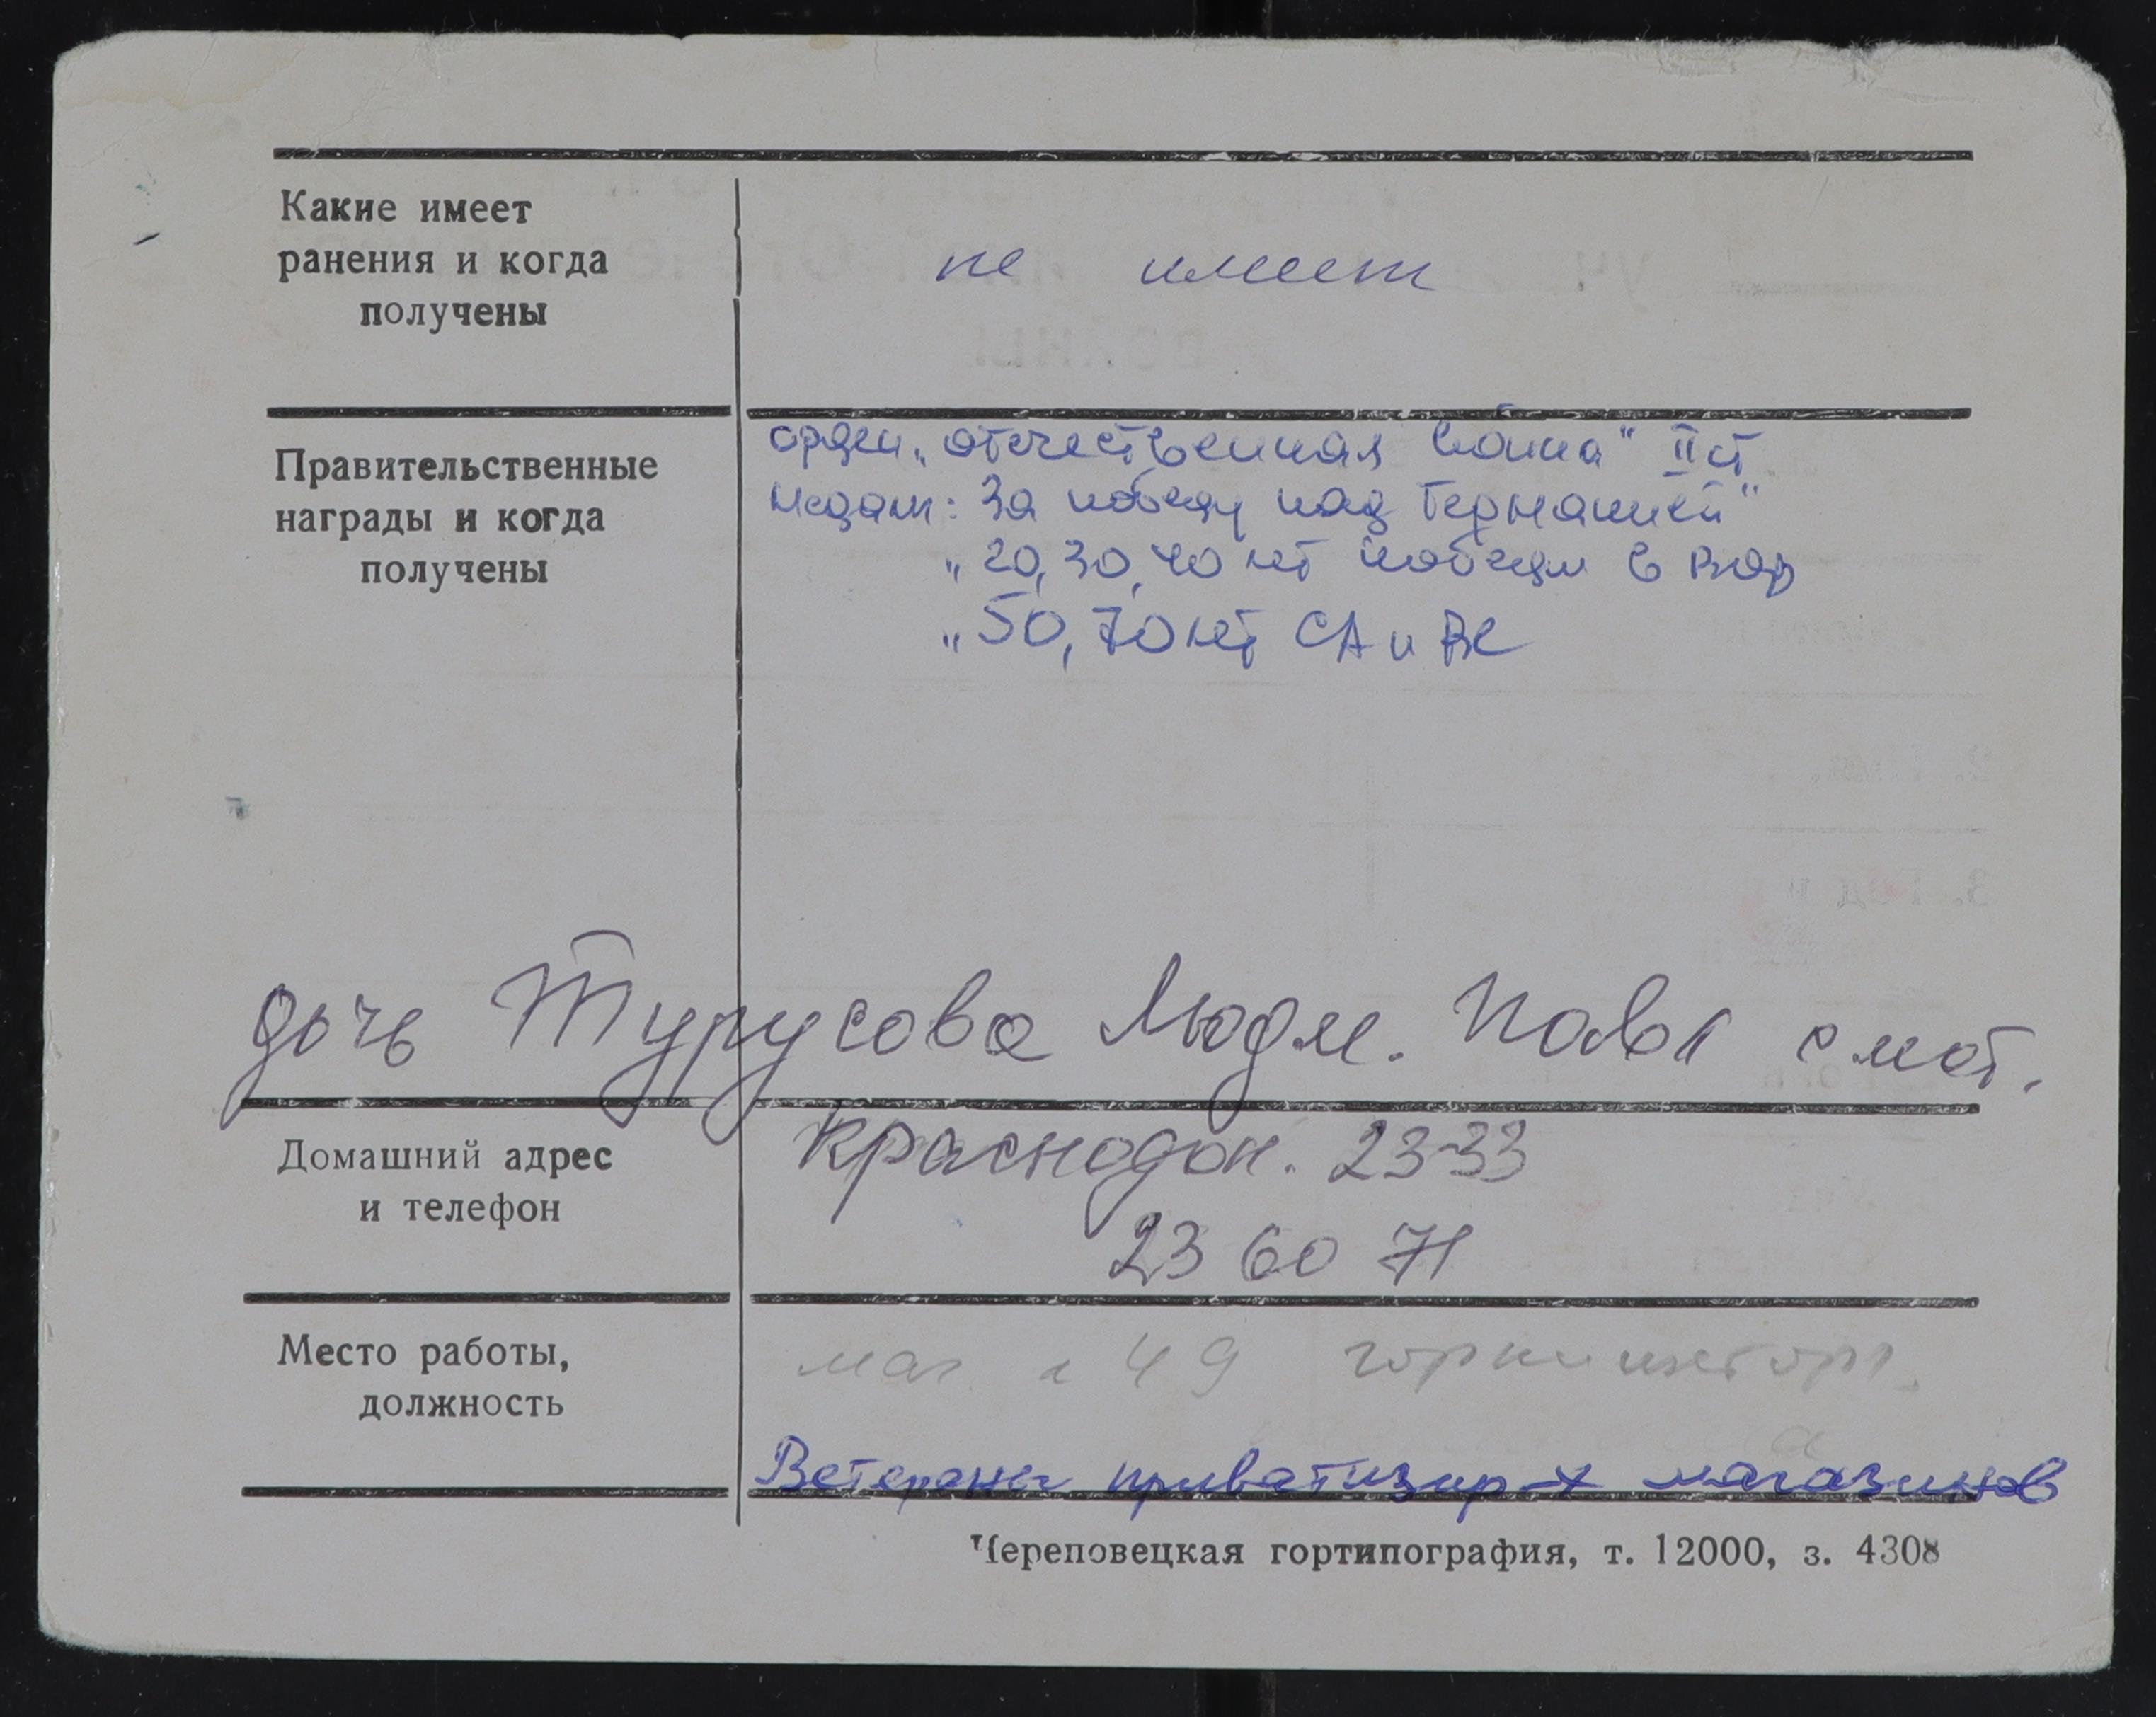 Какие имеет
ранения и когда
получены
не имеет
Правительственные
награды и когда
получены
орден „Отечественная война" II ст
медали: За победу над Германией"
„ 20, 30, 40 лет победы в ВОВ
„ 50, 70 лет СА и ВС
дочь Турусова Людм. Павл смот.
Домашний адрес
и телефон
Краснодон. 23-33
23 60 71
Место работы,
должность
маг 49
Ветераны приватизир-х магазинов
Череповецкая гортипография, т. 12000, з. 4308